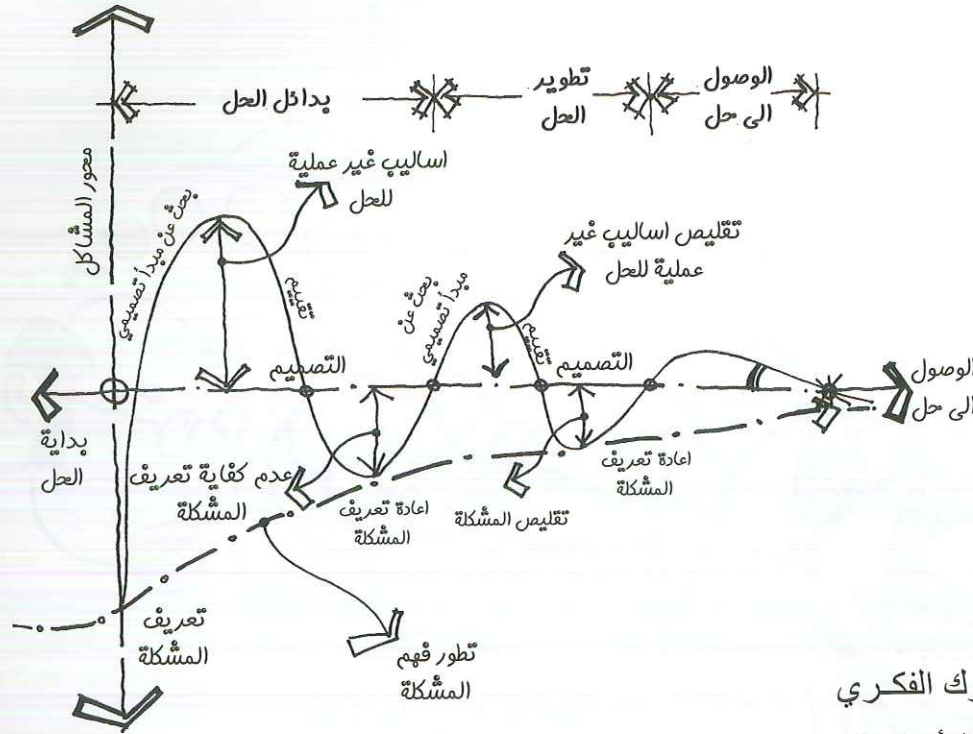 بدائل الحل
تطوير
الحل
الوصول
الى حل
محور المشاكل
اساليب غير عملية
للحل
بحث عن مبدأ تصميمي
تقييم
تقليص اساليب غير
عملية للحل
بحث عن
مبدأ تصميمي
تقييم
التصميم
التصميم
الوصول
الى حل
بداية
الحل
عدم كفاية تعريف
المشكلة
اعادة تعريف
المشكلة
تقليص المشكلة
اعادة تعريف
المشكلة
تعريف
المشكلة
تطور فهم
المشكلة
الفكري